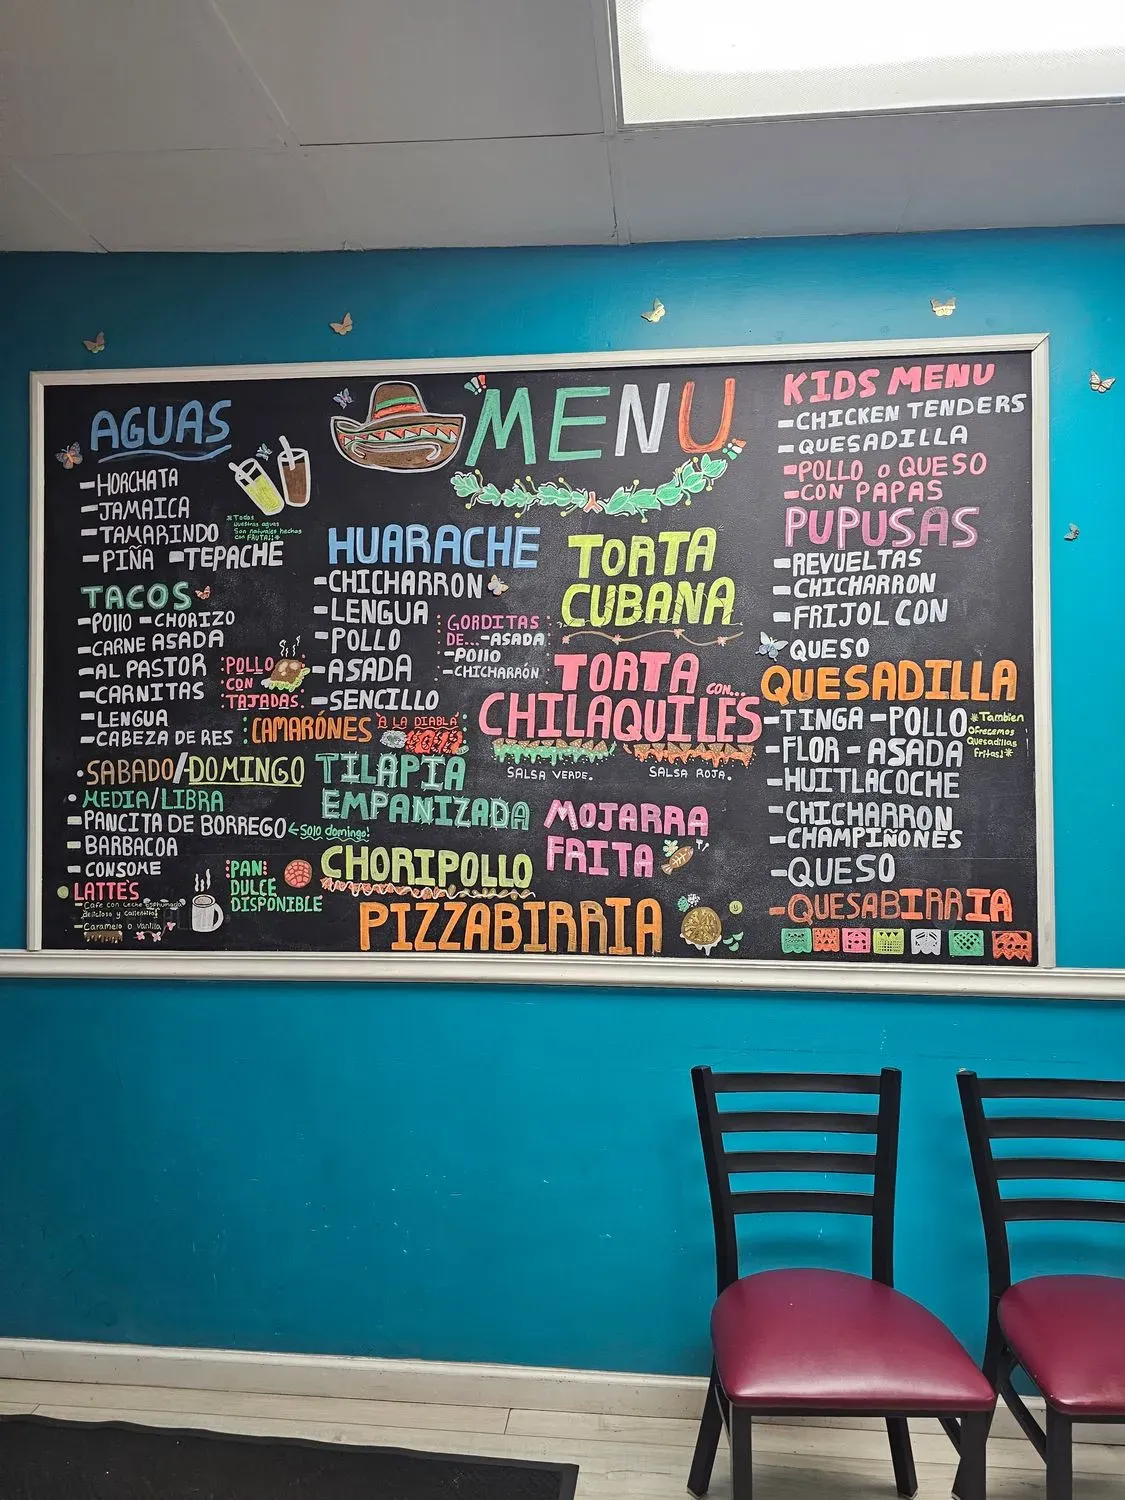 MENU
AGUAS
-HORCHATA
-JAMAICA
-TAMARINDO
-PIÑA -TEPACHE
*Todas
nuestras aguas
Son naturales hechas
con FRUTA!!*
TACOS
-POllO -CHORIZO
-CARNE ASADA
-AL PASTOR
-CARNITAS
-LENGUA
-CABEZA DE RES
POLLO
CON
TAJADAS
•SABADO/DOMINGO
•MEDIA/LIBRA
-PANCITA DE BORREGO ←Solo domingo!
-BARBACOA
-CONSOME
•LATTES
-Cafe con Leche espumado
delicioso y calientito!
-Caramelo o Vanilla
PAN
DULCE
DISPONIBLE
HUARACHE
-CHICHARRON
-LENGUA
-POLLO
-ASADA
-SENCILLO
GORDITAS
DE...-ASADA
-POllO
-CHICHARRÓN
CAMARÓNES A LA DIABLA
TILAPIA
EMPANIZADA
CHORIPOLLO
PIZZABIRRIA
TORTA
CUBANA
TORTA CON...
CHILAQUILES
SALSA VERDE. SALSA ROJA.
MOJARRA
FRITA
KIDS MENU
-CHICKEN TENDERS
-QUESADILLA
-POLLO o QUESO
-CON PAPAS
PUPUSAS
-REVUELTAS
-CHICHARRON
-FRIJOL CON
QUESO
QUESADILLA
-TINGA -POLLO
-FLOR - ASADA
-HUITLACOCHE
-CHICHARRON
-CHAMPIÑONES
-QUESO
-QUESABIRRIA
*Tambien
Ofrecemos
Quesadillas
Fritas!*